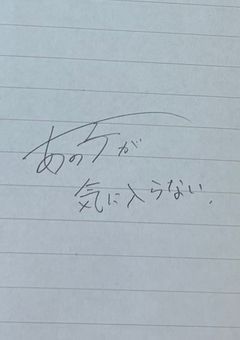 あのケが
気に入らない.